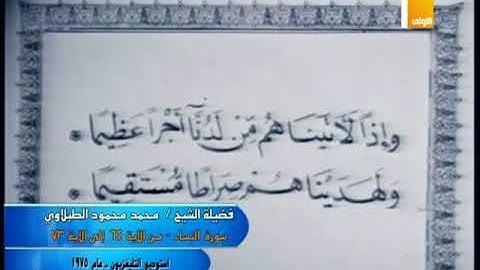 الأولى
وَإِذًا لَّآتَيْنَاهُم مِّن لَّدُنَّآ أَجْرًا عَظِيمًا *
وَلَهَدَيْنَاهُمْ صِرَاطًا مُّسْتَقِيمًا *
فضيلة الشيخ / محمد محمود الطبلاوي
سورة النساء - من الآية ٦٤ إلى الآية ٧٣
استوديو التليفزيون - عام ١٩٧٥